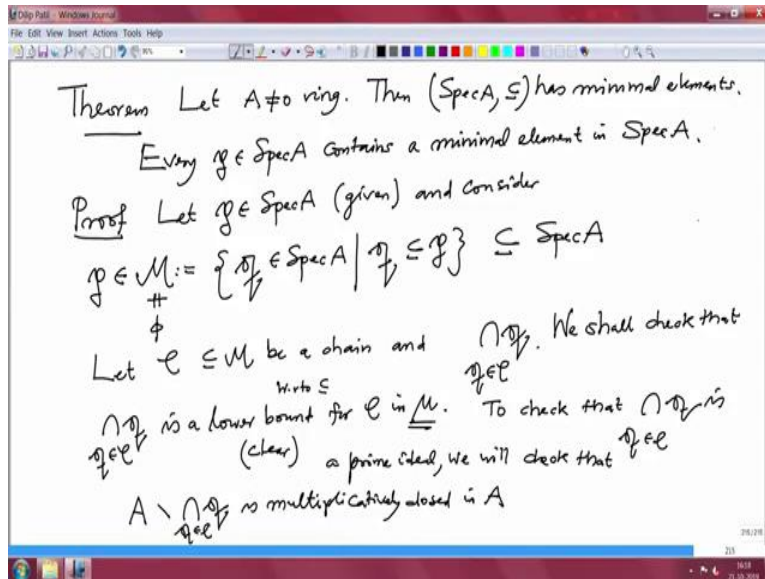 Dilip Patil - Windows Journal
File Edit View Insert Actions Tools Help
Theorem Let A≠0 ring. Then (Spec A, ⊆) has minimal elements.
Every 𝔭 ∈ Spec A contains a minimal element in Spec A.
Proof Let 𝔭 ∈ Spec A (given) and consider
𝔭 ∈ M := { 𝔮 ∈ Spec A | 𝔮 ⊆ 𝔭 } ⊆ Spec A
≠
ϕ
Let 𝒞 ⊆ M be a chain and ⋂𝔮. We shall check that
w.r.to ⊆ 𝔮∈𝒞
⋂𝔮 is a lower bound for 𝒞 in M. To check that ⋂𝔮 is
𝔮∈𝒞 (clear) a prime ideal, we will check that 𝔮∈𝒞
A \ ⋂𝔮 is multiplicatively closed in A
𝔮∈𝒞
215
16:18